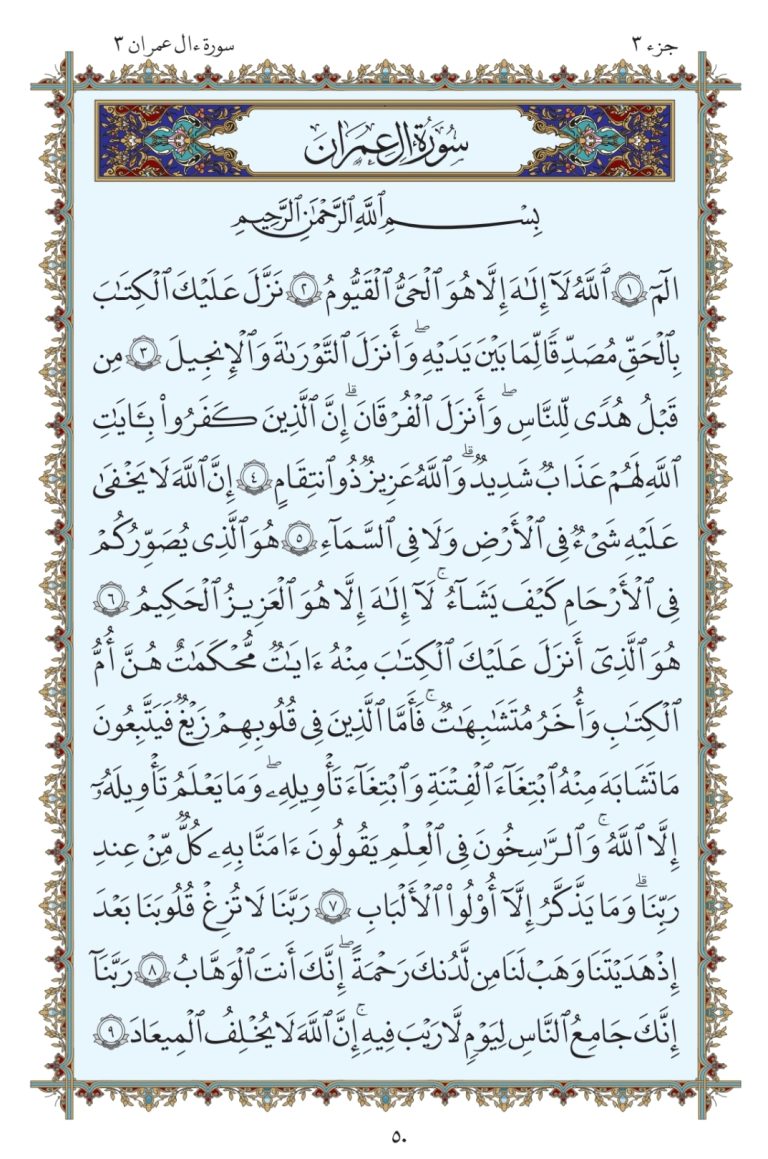 جزء ٣
سورة ءال عمران ٣
سُورَةُ آلِ عِمْرَانَ
بِسْمِ ٱللَّهِ ٱلرَّحْمَٰنِ ٱلرَّحِيمِ
الٓمٓ ١ ٱللَّهُ لَآ إِلَٰهَ إِلَّا هُوَ ٱلْحَىُّ ٱلْقَيُّومُ ٢ نَزَّلَ عَلَيْكَ ٱلْكِتَٰبَ
بِٱلْحَقِّ مُصَدِّقًا لِّمَا بَيْنَ يَدَيْهِ ۖ وَأَنزَلَ ٱلتَّوْرَىٰةَ وَٱلْإِنجِيلَ ٣ مِن
قَبْلُ هُدًى لِّلنَّاسِ ۖ وَأَنزَلَ ٱلْفُرْقَانَ ۗ إِنَّ ٱلَّذِينَ كَفَرُوا۟ بِـَٔايَٰتِ
ٱللَّهِ لَهُمْ عَذَابٌ شَدِيدٌ ۗ وَٱللَّهُ عَزِيزٌ ذُو ٱنتِقَامٍ ٤ إِنَّ ٱللَّهَ لَا يَخْفَىٰ
عَلَيْهِ شَىْءٌ فِى ٱلْأَرْضِ وَلَا فِى ٱلسَّمَآءِ ٥ هُوَ ٱلَّذِى يُصَوِّرُكُمْ
فِى ٱلْأَرْحَامِ كَيْفَ يَشَآءُ ۚ لَآ إِلَٰهَ إِلَّا هُوَ ٱلْعَزِيزُ ٱلْحَكِيمُ ٦
هُوَ ٱلَّذِىٓ أَنزَلَ عَلَيْكَ ٱلْكِتَٰبَ مِنْهُ ءَايَٰتٌ مُّحْكَمَٰتٌ هُنَّ أُمُّ
ٱلْكِتَٰبِ وَأُخَرُ مُتَشَٰبِهَٰتٌ ۖ فَأَمَّا ٱلَّذِينَ فِى قُلُوبِهِمْ زَيْغٌ فَيَتَّبِعُونَ
مَا تَشَٰبَهَ مِنْهُ ٱبْتِغَآءَ ٱلْفِتْنَةِ وَٱبْتِغَآءَ تَأْوِيلِهِۦ ۖ وَمَا يَعْلَمُ تَأْوِيلَهُۥٓ
إِلَّا ٱللَّهُ ۗ وَٱلرَّٰسِخُونَ فِى ٱلْعِلْمِ يَقُولُونَ ءَامَنَّا بِهِۦ كُلٌّ مِّنْ عِندِ
رَبِّنَا ۗ وَمَا يَذَّكَّرُ إِلَّآ أُو۟لُوا۟ ٱلْأَلْبَٰبِ ٧ رَبَّنَا لَا تُزِغْ قُلُوبَنَا بَعْدَ
إِذْ هَدَيْتَنَا وَهَبْ لَنَا مِن لَّدُنكَ رَحْمَةً ۖ إِنَّكَ أَنتَ ٱلْوَهَّابُ ٨ رَبَّنَآ
إِنَّكَ جَامِعُ ٱلنَّاسِ لِيَوْمٍ لَّا رَيْبَ فِيهِ ۚ إِنَّ ٱللَّهَ لَا يُخْلِفُ ٱلْمِيعَادَ ٩
٥٠